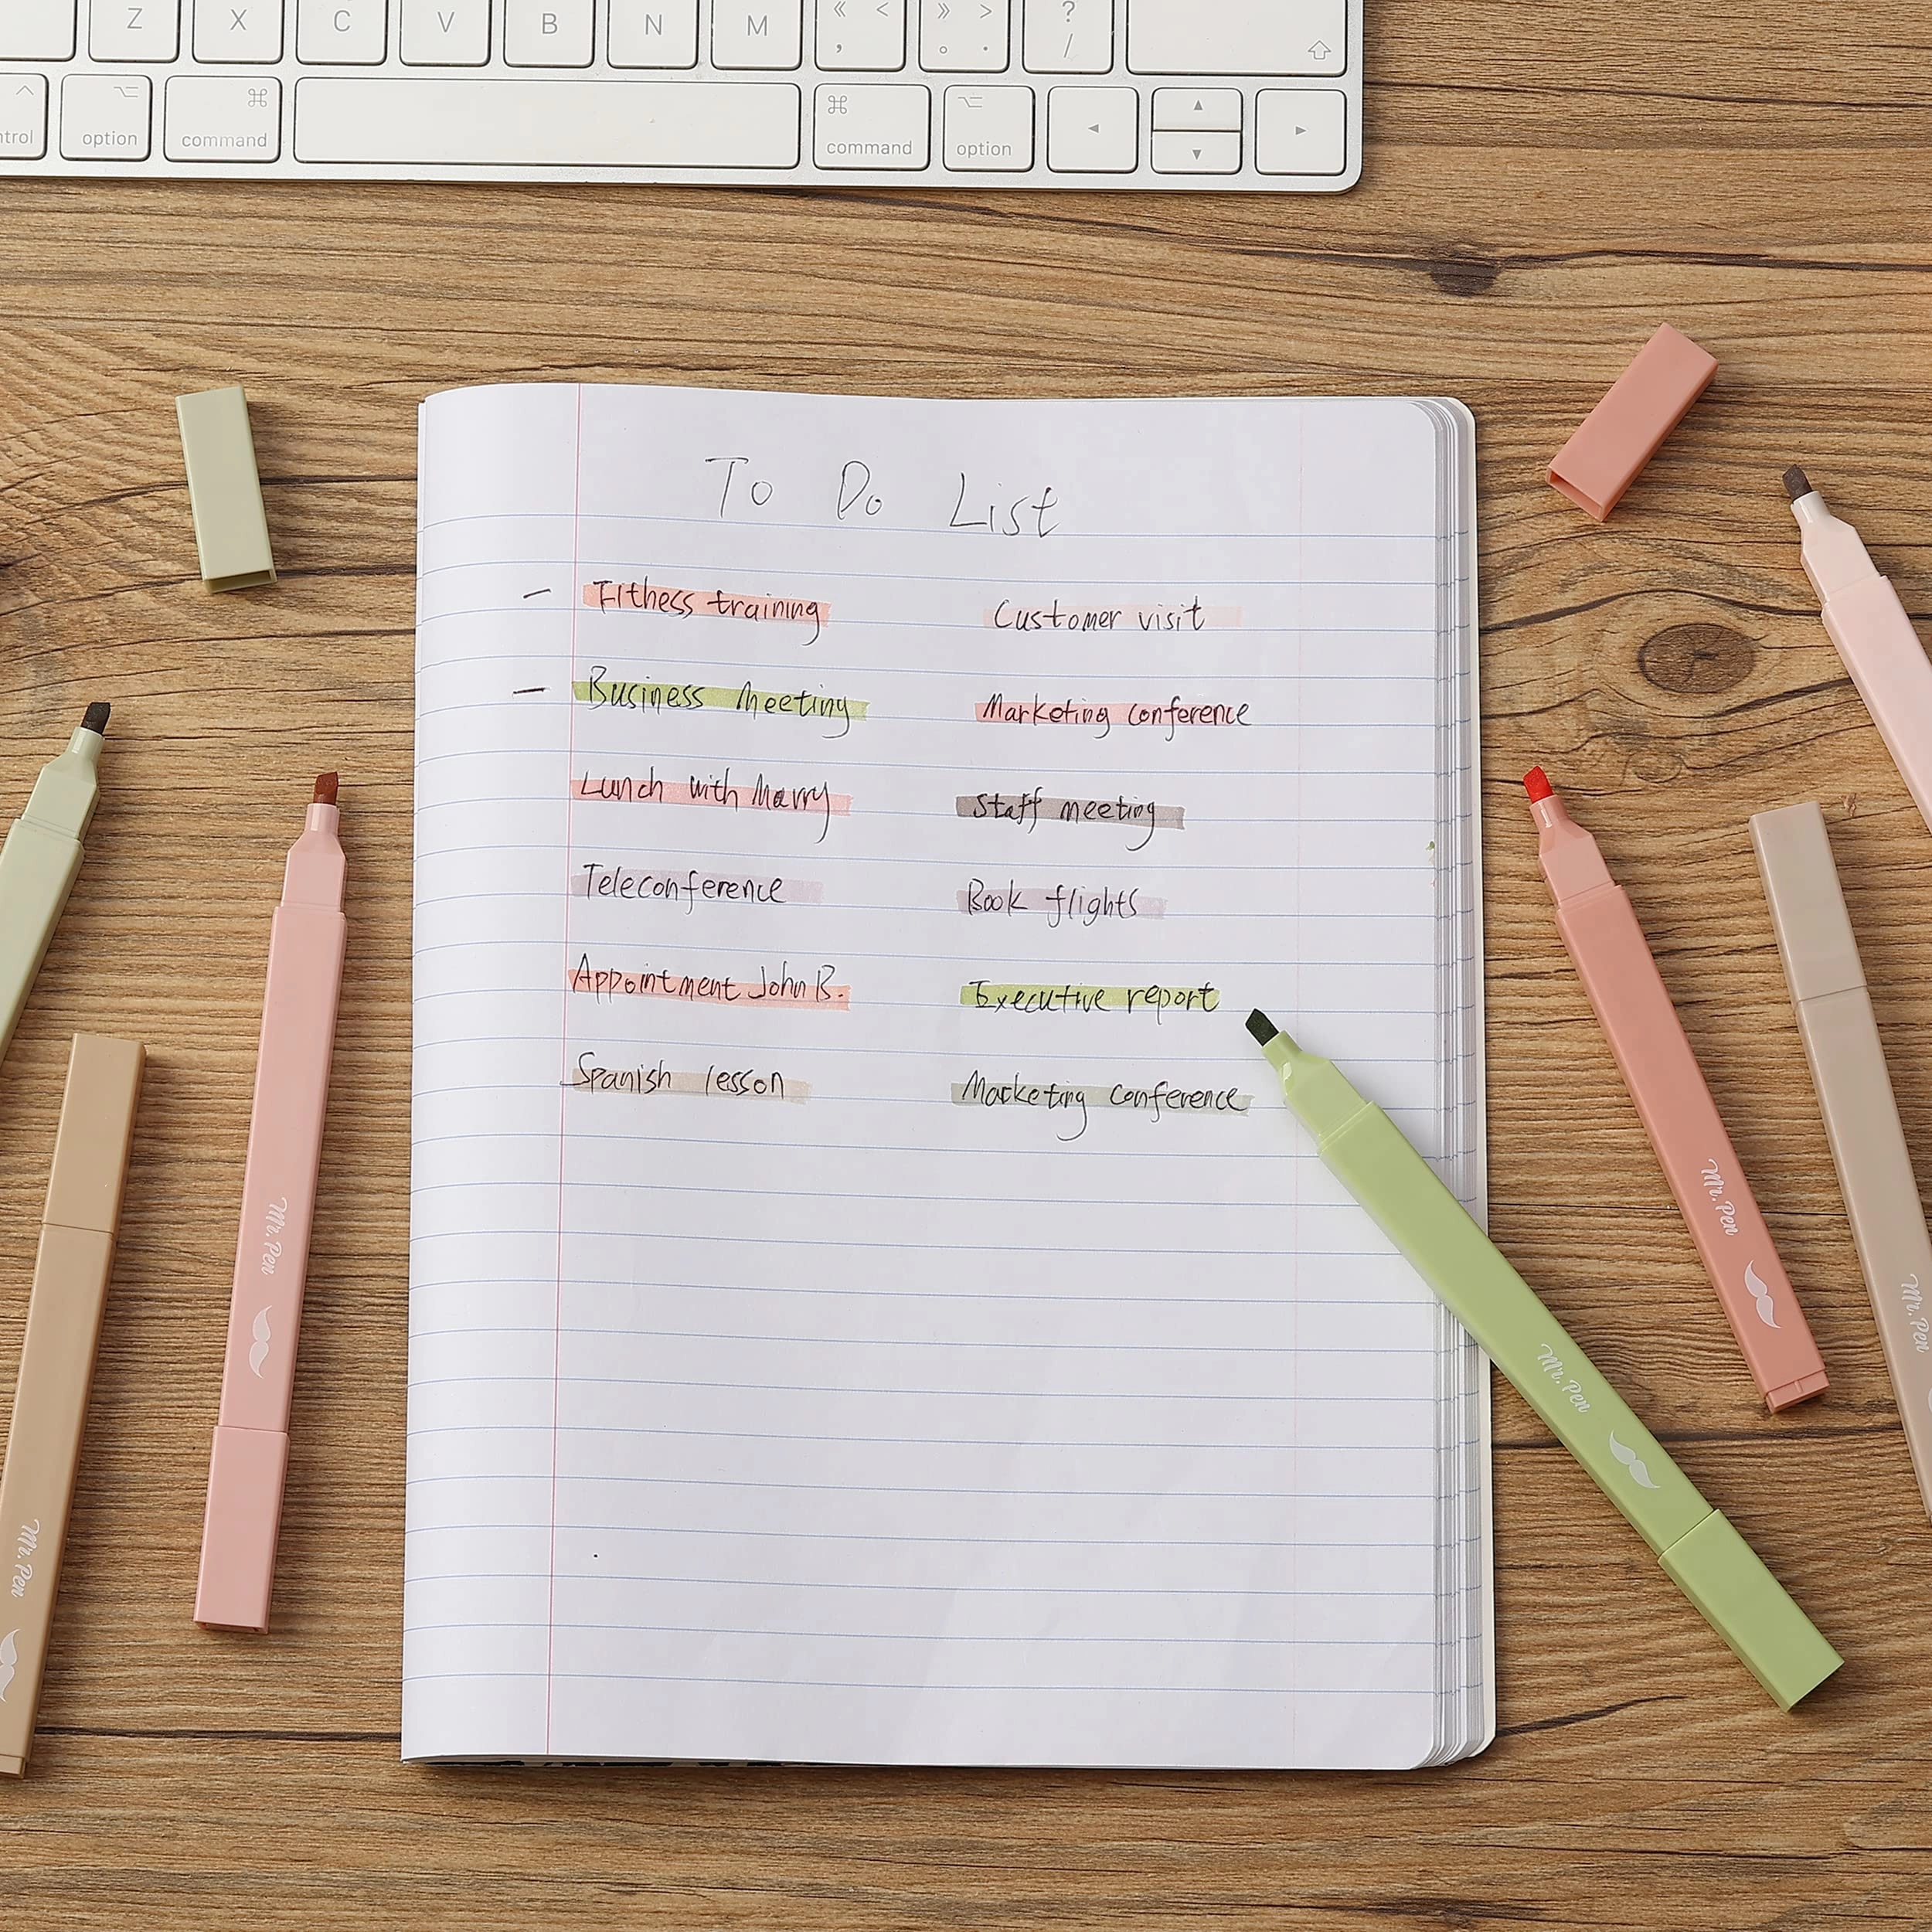 Z X C V B N M « < , » > 。 . ? /
ntrol option command command option
To Do List
– Fithess training
Customer visit
– Business meeting
Marketing conference
Lunch with Marry
Staff meeting
Teleconference
Book flights
Appointment John B.
Executive report
Spanish lesson
Marketing Conference
Mr. Pen
Mr. Pen
Mr. Pen
Mr. Pen
Mr. Pen